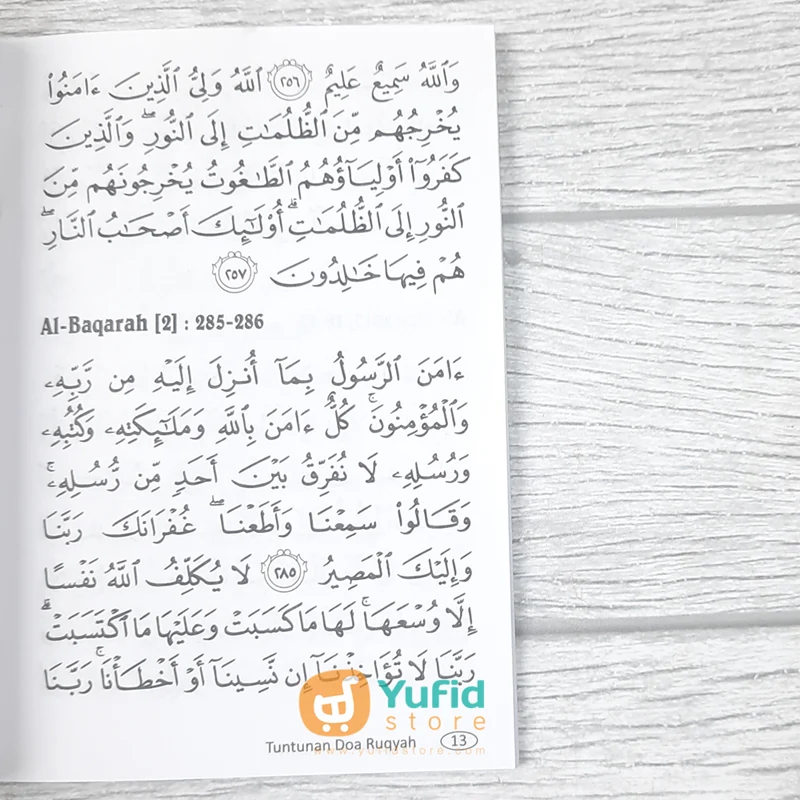 وَٱللَّهُ سَمِيعٌ عَلِيمٌ ٢٥٦ ٱللَّهُ وَلِىُّ ٱلَّذِينَ ءَامَنُوا۟
يُخْرِجُهُم مِّنَ ٱلظُّلُمَٰتِ إِلَى ٱلنُّورِ ۖ وَٱلَّذِينَ
كَفَرُوٓا۟ أَوْلِيَآؤُهُمُ ٱلطَّٰغُوتُ يُخْرِجُونَهُم مِّنَ
ٱلنُّورِ إِلَى ٱلظُّلُمَٰتِ ۗ أُو۟لَٰٓئِكَ أَصْحَٰبُ ٱلنَّارِ ۖ
هُمْ فِيهَا خَٰلِدُونَ ٢٥٧
Al-Baqarah [2] : 285-286
ءَامَنَ ٱلرَّسُولُ بِمَآ أُنزِلَ إِلَيْهِ مِن رَّبِّهِۦ
وَٱلْمُؤْمِنُونَ ۚ كُلٌّ ءَامَنَ بِٱللَّهِ وَمَلَٰٓئِكَتِهِۦ وَكُتُبِهِۦ
وَرُسُلِهِۦ لَا نُفَرِّقُ بَيْنَ أَحَدٍ مِّن رُّسُلِهِۦ ۚ
وَقَالُوا۟ سَمِعْنَا وَأَطَعْنَا ۖ غُفْرَانَكَ رَبَّنَا
وَإِلَيْكَ ٱلْمَصِيرُ ٢٨٥ لَا يُكَلِّفُ ٱللَّهُ نَفْسًا
إِلَّا وُسْعَهَا ۚ لَهَا مَا كَسَبَتْ وَعَلَيْهَا مَا ٱكْتَسَبَتْ ۗ
رَبَّنَا لَا تُؤَاخِذْنَآ إِن نَّسِينَآ أَوْ أَخْطَأْنَا ۚ رَبَّنَا
Yufid
store
Tuntunan Doa Ruqyah 13
www.yufidstore.com